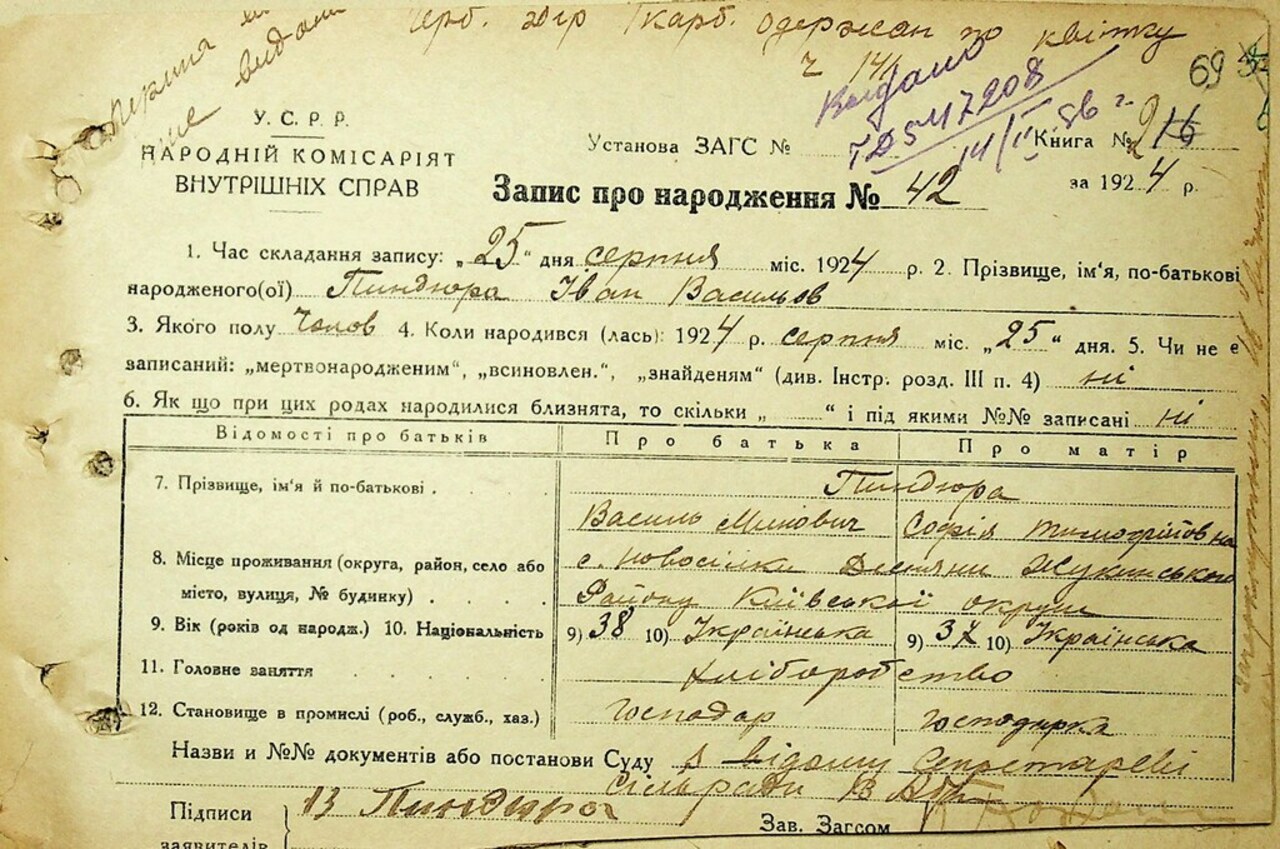 Герб. збір 1 карб. одержан по квітку
ч 146
69
Видано
У. С. Р. Р.
НАРОДНІЙ КОМІСАРІЯТ
ВНУТРІШНІХ СПРАВ
Установа ЗАГС №
Книга № 216
Запис про народження № 42
за 1924 р.
1. Час складання запису: „25“ дня серпня міс. 1924 р. 2. Прізвище, ім'я, по-батькові
народженого(ої) Пиндюра Іван Васильов
3. Якого полу Чолов 4. Коли народився (лась): 1924 р. серпня міс. „25“ дня. 5. Чи не є
записаний: „мертвонародженим“, „всиновлен.“, „знайденям“ (див. Інстр. розд. III п. 4) ні
6. Як що при цих родах народилися близнята, то скільки „ “ і під якими №№ записані ні
Відомості про батьків Про батька Про матір
7. Прізвище, ім'я й по-батькові . Пиндюра
Василь Минович Софія Тимофіївна
8. Місце проживання (округа, район, село або с. Новосілки Жукинського
місто, вулиця, № будинку) . . . . Району Київської округи
9. Вік (років од народж.) 10. Національність 9) 38 10) Українська 9) 37 10) Українська
11. Головне заняття . . . . . . хліборобство
12. Становище в промислі (роб., служб., хаз.) Господар Господарка
Назви и №№ документів або постанови Суду з відому Секретареві
сільради
Підписи
заявителів
Пиндюра
Зав. Загсом